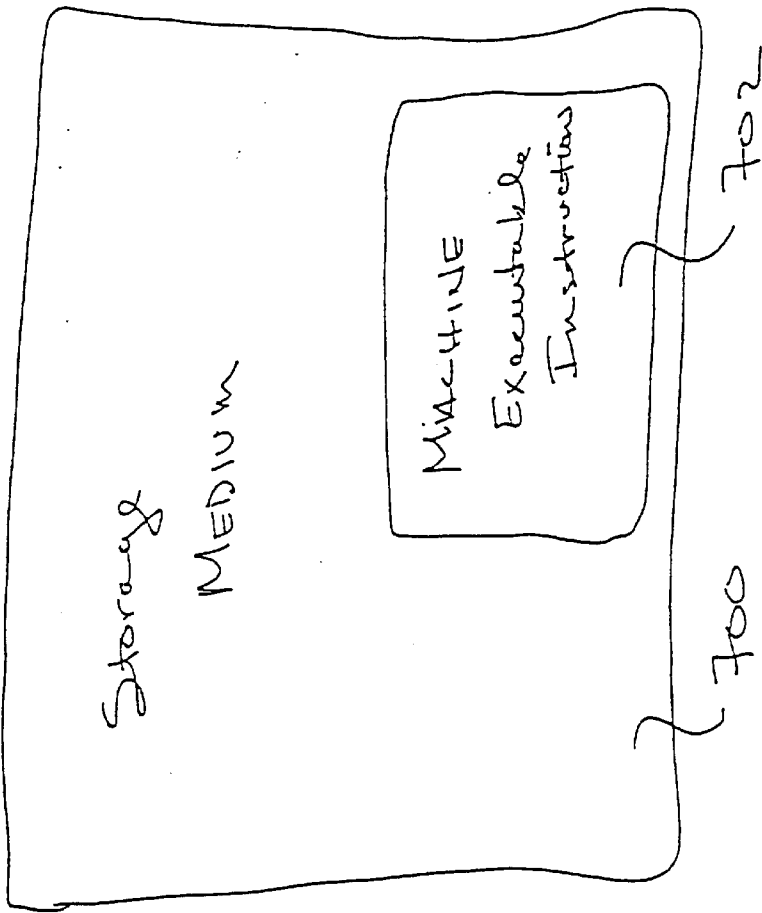 Storage
MEDIUM
MACHINE
Executable
Instructions
700
702